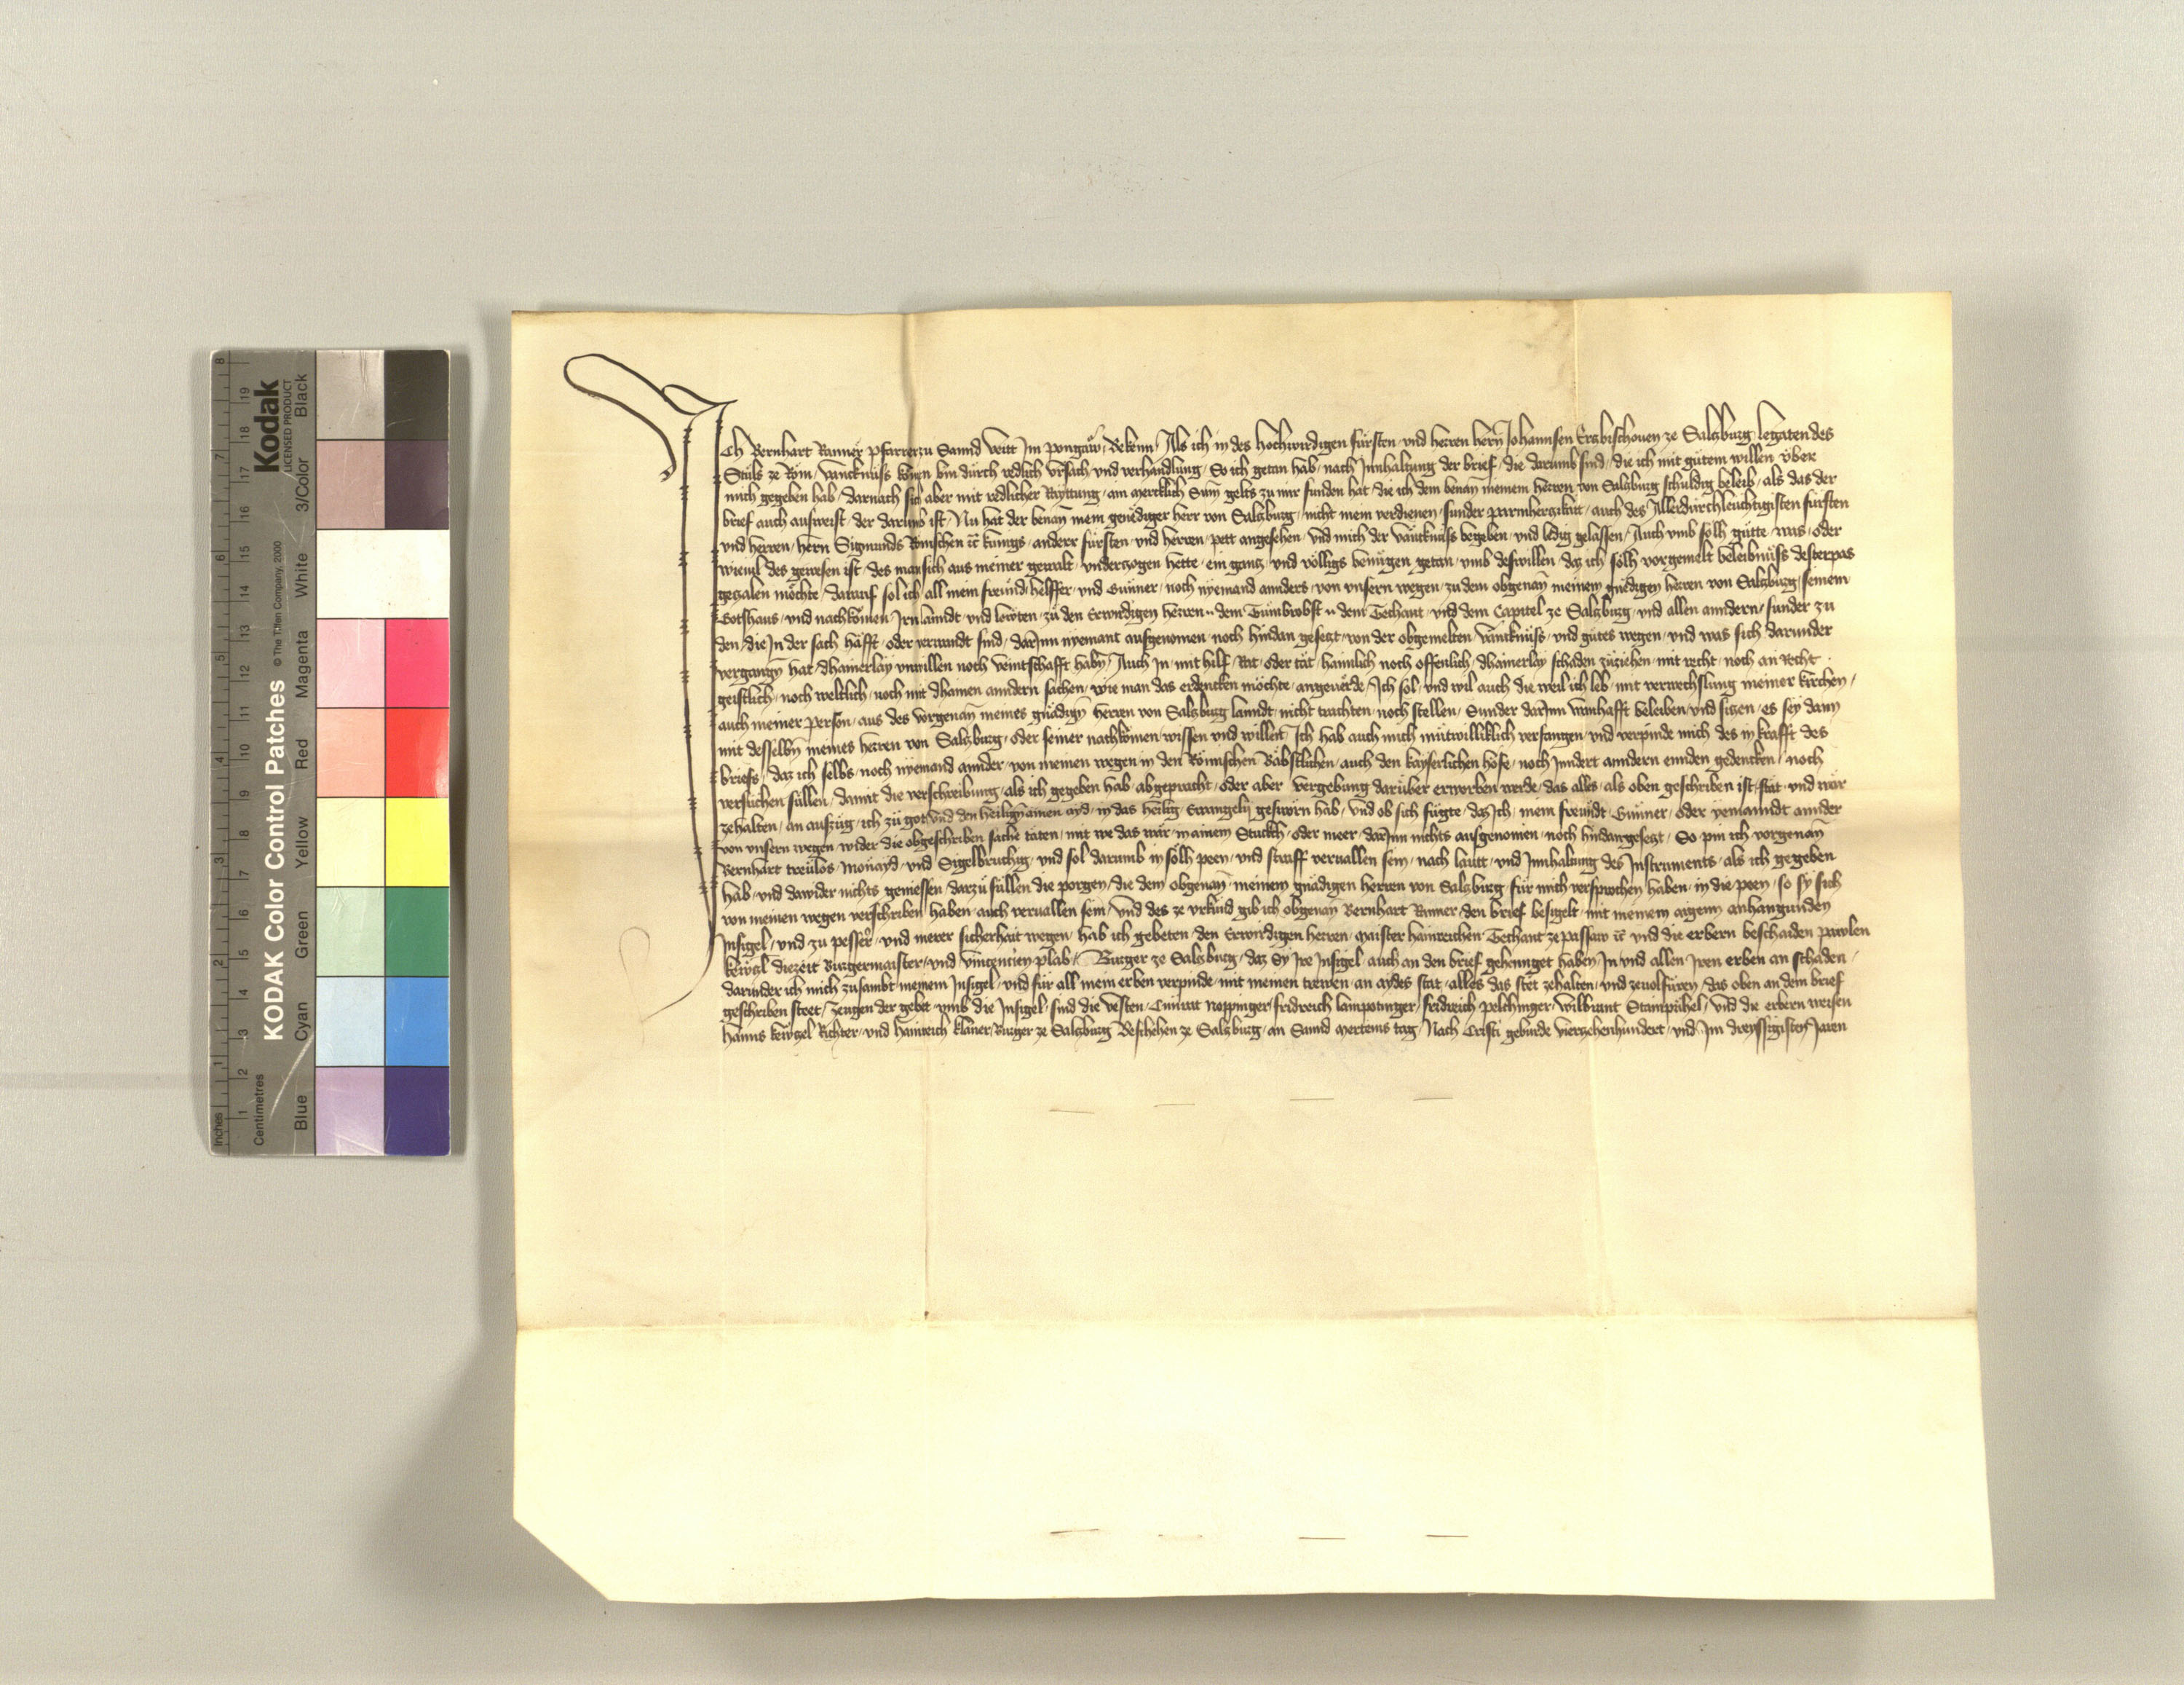 Ich Bernhart Ranner Pfarrer zu Sannd Veitt Im Pongaw, Bekenn, Als ich in des Hochwirdigen fürsten und herren hern Johannsen Erzbischouen ze Salczburg legaten des
Stuls ze Rom, vanncknüss komen bin durch redlich ursach und verhandlung, So ich getan hab, nach Innhaltung der brief, die darumb sind, die ich mit gütem willen über
mich gegeben hab, darnach sich aber mit redlicher Rayttung, ain mercklich Sum gelts zu mir funden hat, die ich dem benan meinem herren von Salczburg schuldig beleib, als das der
brief auch ausweist, der darumb ist, Nu hat der benan mein genediger herr von Salczburg, nicht mein verdienen, sunder parmherzikait, auch des Allerdurchleuchtigisten fürsten
und herren, hern Sigmunds Römischen etc kunigs, anderr fürsten und herren, pett angesehen, und mich der vanncknüss begeben, und ledig gelassen, Auch umb solh gütte, was, oder
wieuil des gewesen ist, des man sich aus meiner gewalt, underczogen hette, ein gancz und völligs benügen getan, umb deswillen, daz ich solh vorgemelt beleibnüss dester pas
geczalen möchte, darauf sol ich, all mein freund, helffer, und Günner, noch nyemand annders, von unsern wegen, zu dem obgenan meinem gnedigen herren von Salczburg, seinem
Gotshaus, und nachkomen, Irn lanndt, und lewten, zu den Erwirdigen herren .. dem Tumbrobst .. dem Techant, und dem Capitel ze Salczburg, und allen anndern, sunder zu
den, die In der sach häfft, oder verwandt sind, darInn nyemant ausgenomen, noch hindan geseczt, von der obgemelten, vanncknüss, und gütes wegen, und was sich darunder
vergangen hat, dhainerlay unwillen noch veintschafft haben, Auch In, mit hilf, Rat, oder tät, haimlich noch offenlich, dhainerlay schaden züziehen, mit recht, noch an Recht,
geistlich, noch weltlich, noch mit dhainen anndern sachen, wie man das erdencken möchte, angeuerde, Ich sol, und wil auch die weil ich leb, mit verwechslung meiner kirchen,
auch meiner person, aus des vorgenan meines gnedigen herren von Salczburg lanndt, nicht trachten, noch stellen, Sunder darInn wonhafft beleiben, und siczen, es sey dann
mit desselben meines herren von Salczburg, oder seiner nachkomen, wissen und willen, Ich hab auch mich mütwilliklich verfangen, und verpinde mich des in krafft des
briefs, daz ich selbs, noch nyemand annder, von meinen wegen in den Römischen Bäbstlichen, auch den kayserlichen höfe, noch Inndert anndern ennden gedencken, noch
versuchen süllen, damit die verschreibung, als ich gegeben hab, abgepracht, oder aber vergebung darüber erworben werde, das alles, als oben geschriben ist, stät, und war
zehalten, an auszug, ich zu got, und den heiligen ainen ayd, in das heilig Ewangely gesworn hab, und ob sich fügte, daz Ich, mein freundt, Günner, oder yemanndt annder
von unsern wegen, wider die obgeschriben sache täten, mit we das wär, in ainem Stuckh, oder meer, darInn nichts ausgenomen, noch hindangeseczt, So pin ich vorgenan
Bernhart treulos, Monayd, und Sigelbruchig, und sol darumb in solh peen, und straff vervallen sein, nach lautt, und Innhaltung des Instruments, als ich gegeben
hab, und dawider nichts geniessen, darzu süllen die porgen, die dem obgenan meinem gnedigen herren von Salczburg für mich versprochen haben, in die peen, so sy sich
von meinen wegen verschriben haben, auch vervallen sein, Und des ze urkund gib ich obgenan Bernhart Ranner, den brief besigelt, mit meinem aigenn anhangunden
Insigel, und zu pesser, und merer sicherhait wegen, hab ich gebeten, den Erwirdigen herren, Maister hainreichen Techant ze passaw etc und die erbern beschaiden pawlen
keuczl diezeit Burgermaister, und Vincencien plab, Burger ze Salczburg, daz Sy Ire Insigel, auch an den brief gehennget haben, In und allen Iren erben an schaden,
darunder ich mich zusambt meinem Insigel, und für all mein erben verpinde, mit meinen trewen, an aydes stat, alles das stet zehalten, und zeuolfüren, das oben an dem brief
geschriben steet, Zeugen der gebet, umb die Insigel, sind die vesten, Cunrat noppinger, fridreich lampotinger, fridreich pelchinger, Wilbrant Stampühel, und die erbern weisen
Hanns keuczel Richter, und Hainreich klaner, Burger ze Salczburg, Beschehen ze Salczburg, an Sannd Mertens tag, Nach Cristi gebürde vierzehenhundert, und Im dreyssigisten Jaren
KODAK Color Control Patches © The Tiffen Company, 2000
Kodak
LICENSED PRODUCT
Inches
Centimetres
Blue Cyan Green Yellow Red Magenta White 3/Color Black